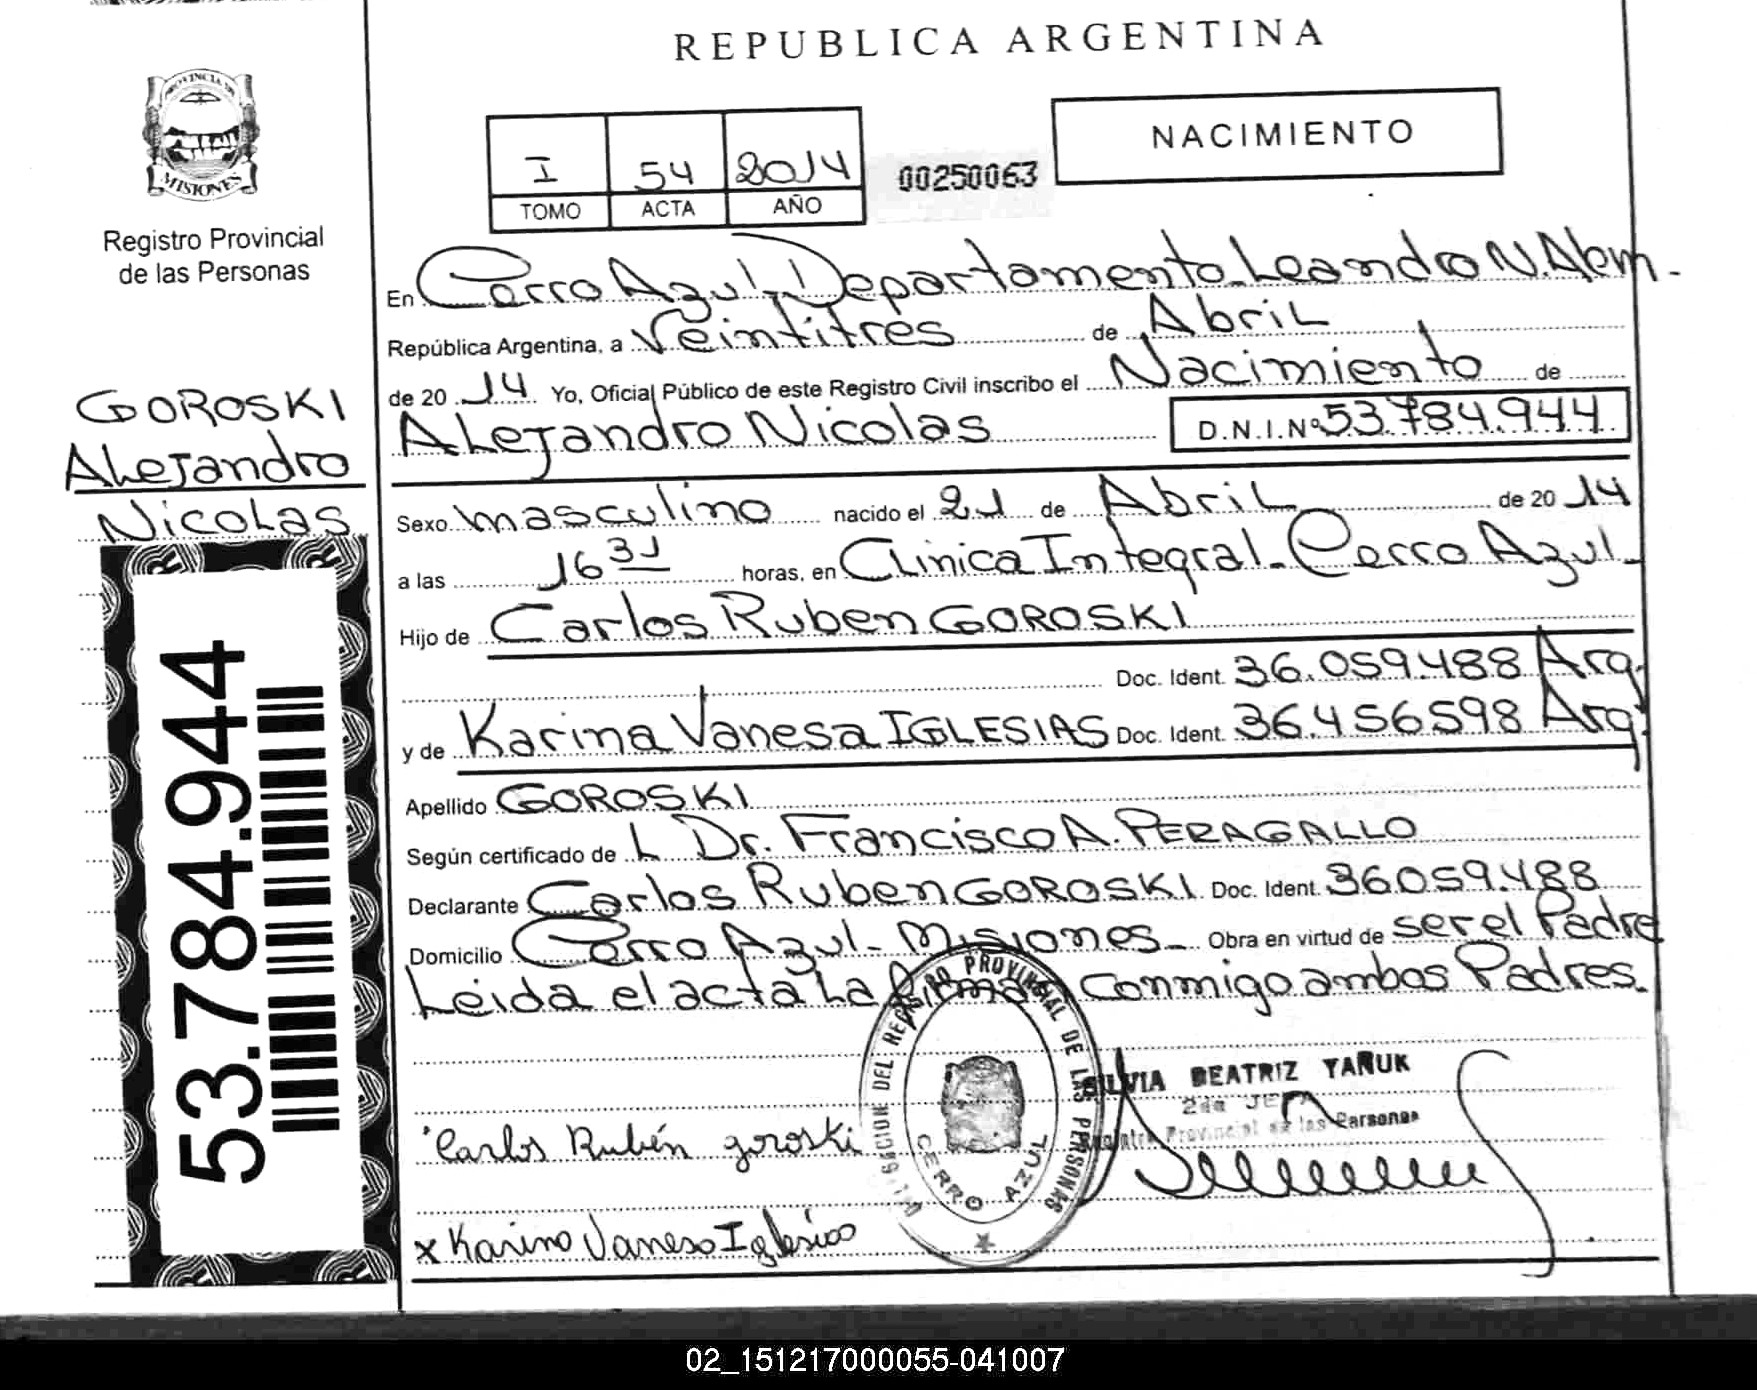 REPUBLICA ARGENTINA
PROVINCIA DE
MISIONES
Registro Provincial
de las Personas
I 54 2014
TOMO ACTA AÑO
00250063
NACIMIENTO
En Cerro Azul - Departamento Leandro N. Alem.-
República Argentina, a Veintitrés de Abril
de 20 14 Yo, Oficial Público de este Registro Civil inscribo el Nacimiento de
Alejandro Nicolas D.N.I.Nº 53.784.944
GOROSKI
Alejandro
Nicolas
53.784.944
Sexo masculino nacido el 21 de Abril de 20 14
a las 16 31 horas, en Clinica Integral - Cerro Azul -
Hijo de Carlos Ruben GOROSKI
Doc. Ident. 36.059.488 Arg.
y de Karina Vanesa IGLESIAS Doc. Ident. 36.456598 Arg.
Apellido GOROSKI
Según certificado de L Dr. Francisco A. PERAGALLO
Declarante Carlos Ruben GOROSKI Doc. Ident. 36059.488
Domicilio Cerro Azul - Misiones - Obra en virtud de ser el Padre
Leida el acta La firman Conmigo ambos Padres.
DEL REGISTRO PROVINCIAL DE LAS PERSONAS
CERRO AZUL
SILVIA BEATRIZ YAÑUK
2da JEFA
Registro Provincial de las Personas
Carlos Rubén goroski
x Karina Vanesa Iglesias
02_151217000055-041007